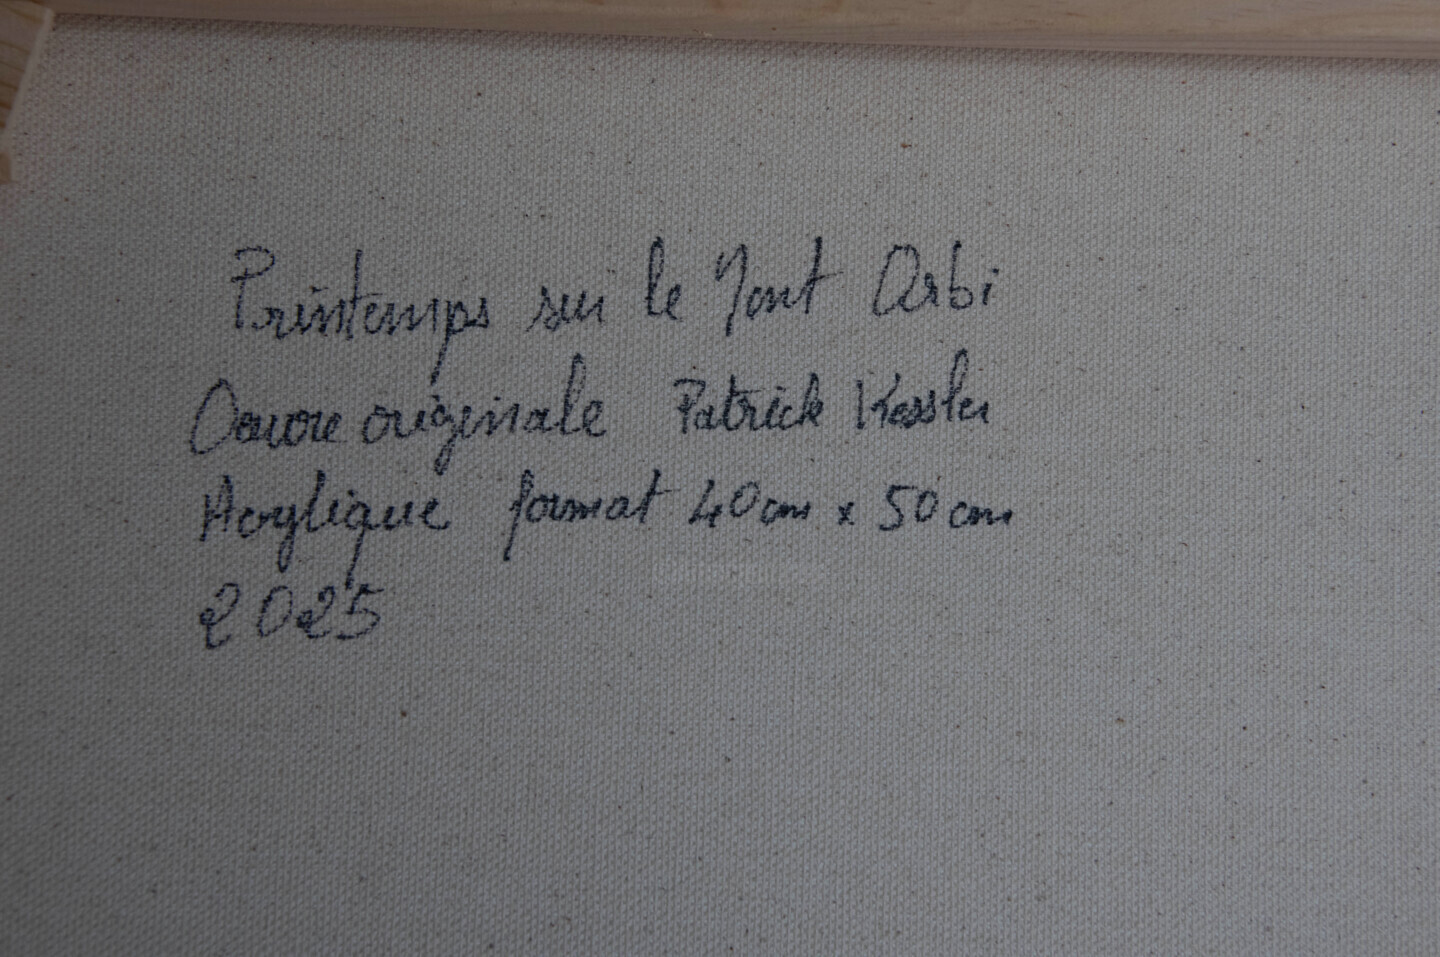 Printemps sur le Mont Orbi
Oeuvre originale Patrick Kessler
Acrylique format 40cm x 50cm
2025